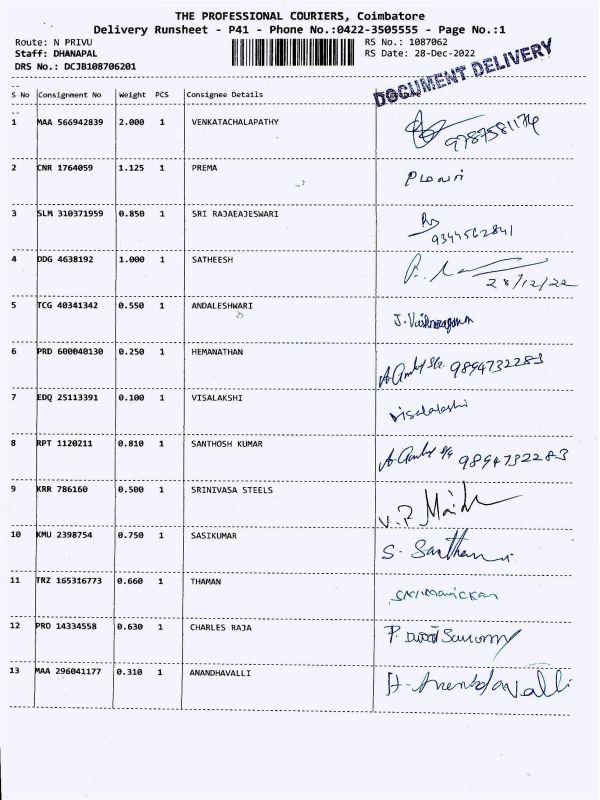 THE PROFESSIONAL COURIERS, Coimbatore
Delivery Runsheet - P41 - Phone No.:0422-3505555 - Page No.:1
Route: N PRIVU RS No.: 1087062
Staff: DHANAPAL RS Date: 28-Dec-2022
DRS No.: DCJB108706201
DOCUMENT DELIVERY
S No Consignment No Weight PCS Consignee Details
1 MAA 566942839 2.000 1 VENKATACHALAPATHY
9787581174
2 CNR 1764059 1.125 1 PREMA
3 SLM 310371959 0.850 1 SRI RAJAEAJESWARI
9344562841
4 DDG 4638192 1.000 1 SATHEESH
28/12/22
5 TCG 40341342 0.550 1 ANDALESHWARI
6 PRD 600040130 0.250 1 HEMANATHAN
9894732283
7 EDQ 25113391 0.100 1 VISALAKSHI
visalakshi
8 RPT 1120211 0.810 1 SANTHOSH KUMAR
9894732283
9 KRR 786160 0.500 1 SRINIVASA STEELS
10 KMU 2398754 0.750 1 SASIKUMAR
11 TRZ 165316773 0.660 1 THAMAN
12 PRO 14334558 0.630 1 CHARLES RAJA
13 MAA 296041177 0.310 1 ANANDHAVALLI